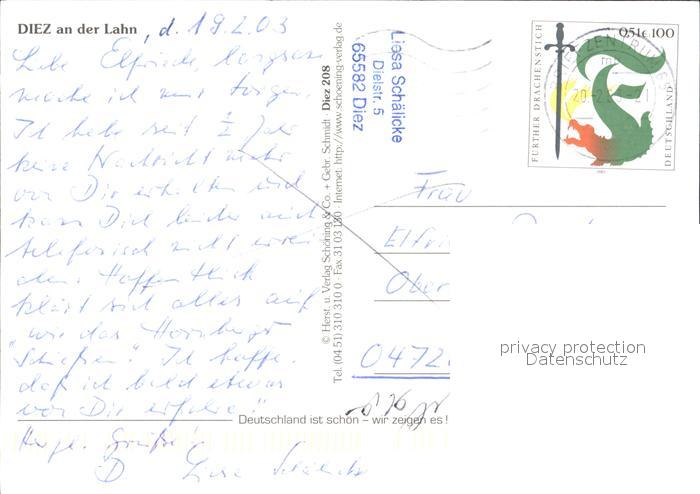 DIEZ an der Lahn, d. 19.2.03
Liebe Elfriede langsam
mache ich mir Sorgen.
Ich habe seit ½ Jahr
keine Nachricht mehr
von Dir erhalten und
kann Dich leider auch
telefonisch nicht errei
chen. Hoffentlich
klärt sich alles auf
"wie das Hornberger
Schießen". Ich hoffe,
daß ich bald etwas
von Dir erfahre!"
Herzl. Grüße!
Liesa Schälicke
© Herst. u. Verlag Schöning & Co. + Gebr. Schmidt · Diez 208
Tel. (04 51) 310 310 0 · Fax 31 03 130 · Internet: http://www.schoening-verlag.de
Deutschland ist schön – wir zeigen es!
Liesa Schälicke
Dielstr. 5
65582 Diez
FURTHER DRACHENSTICH
0,51€ 100
DEUTSCHLAND
Frau
Elfri
Ober
0472
privacy protection
Datenschutz